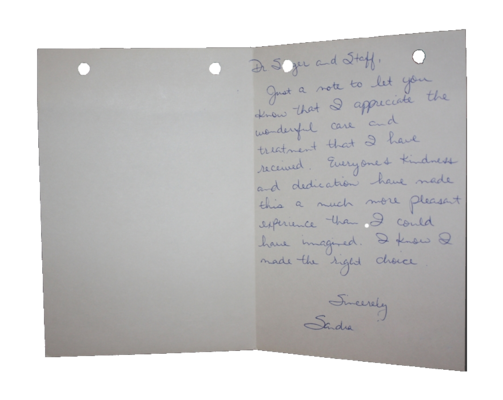 Dr Singer and Staff,
Just a note to let you
know that I appreciate the
wonderful care and
treatment that I have
received. Everyones kindness
and dedication have made
this a much more pleasant
experience than I could
have imagined. I know I
made the right choice.
Sincerely
Sandra